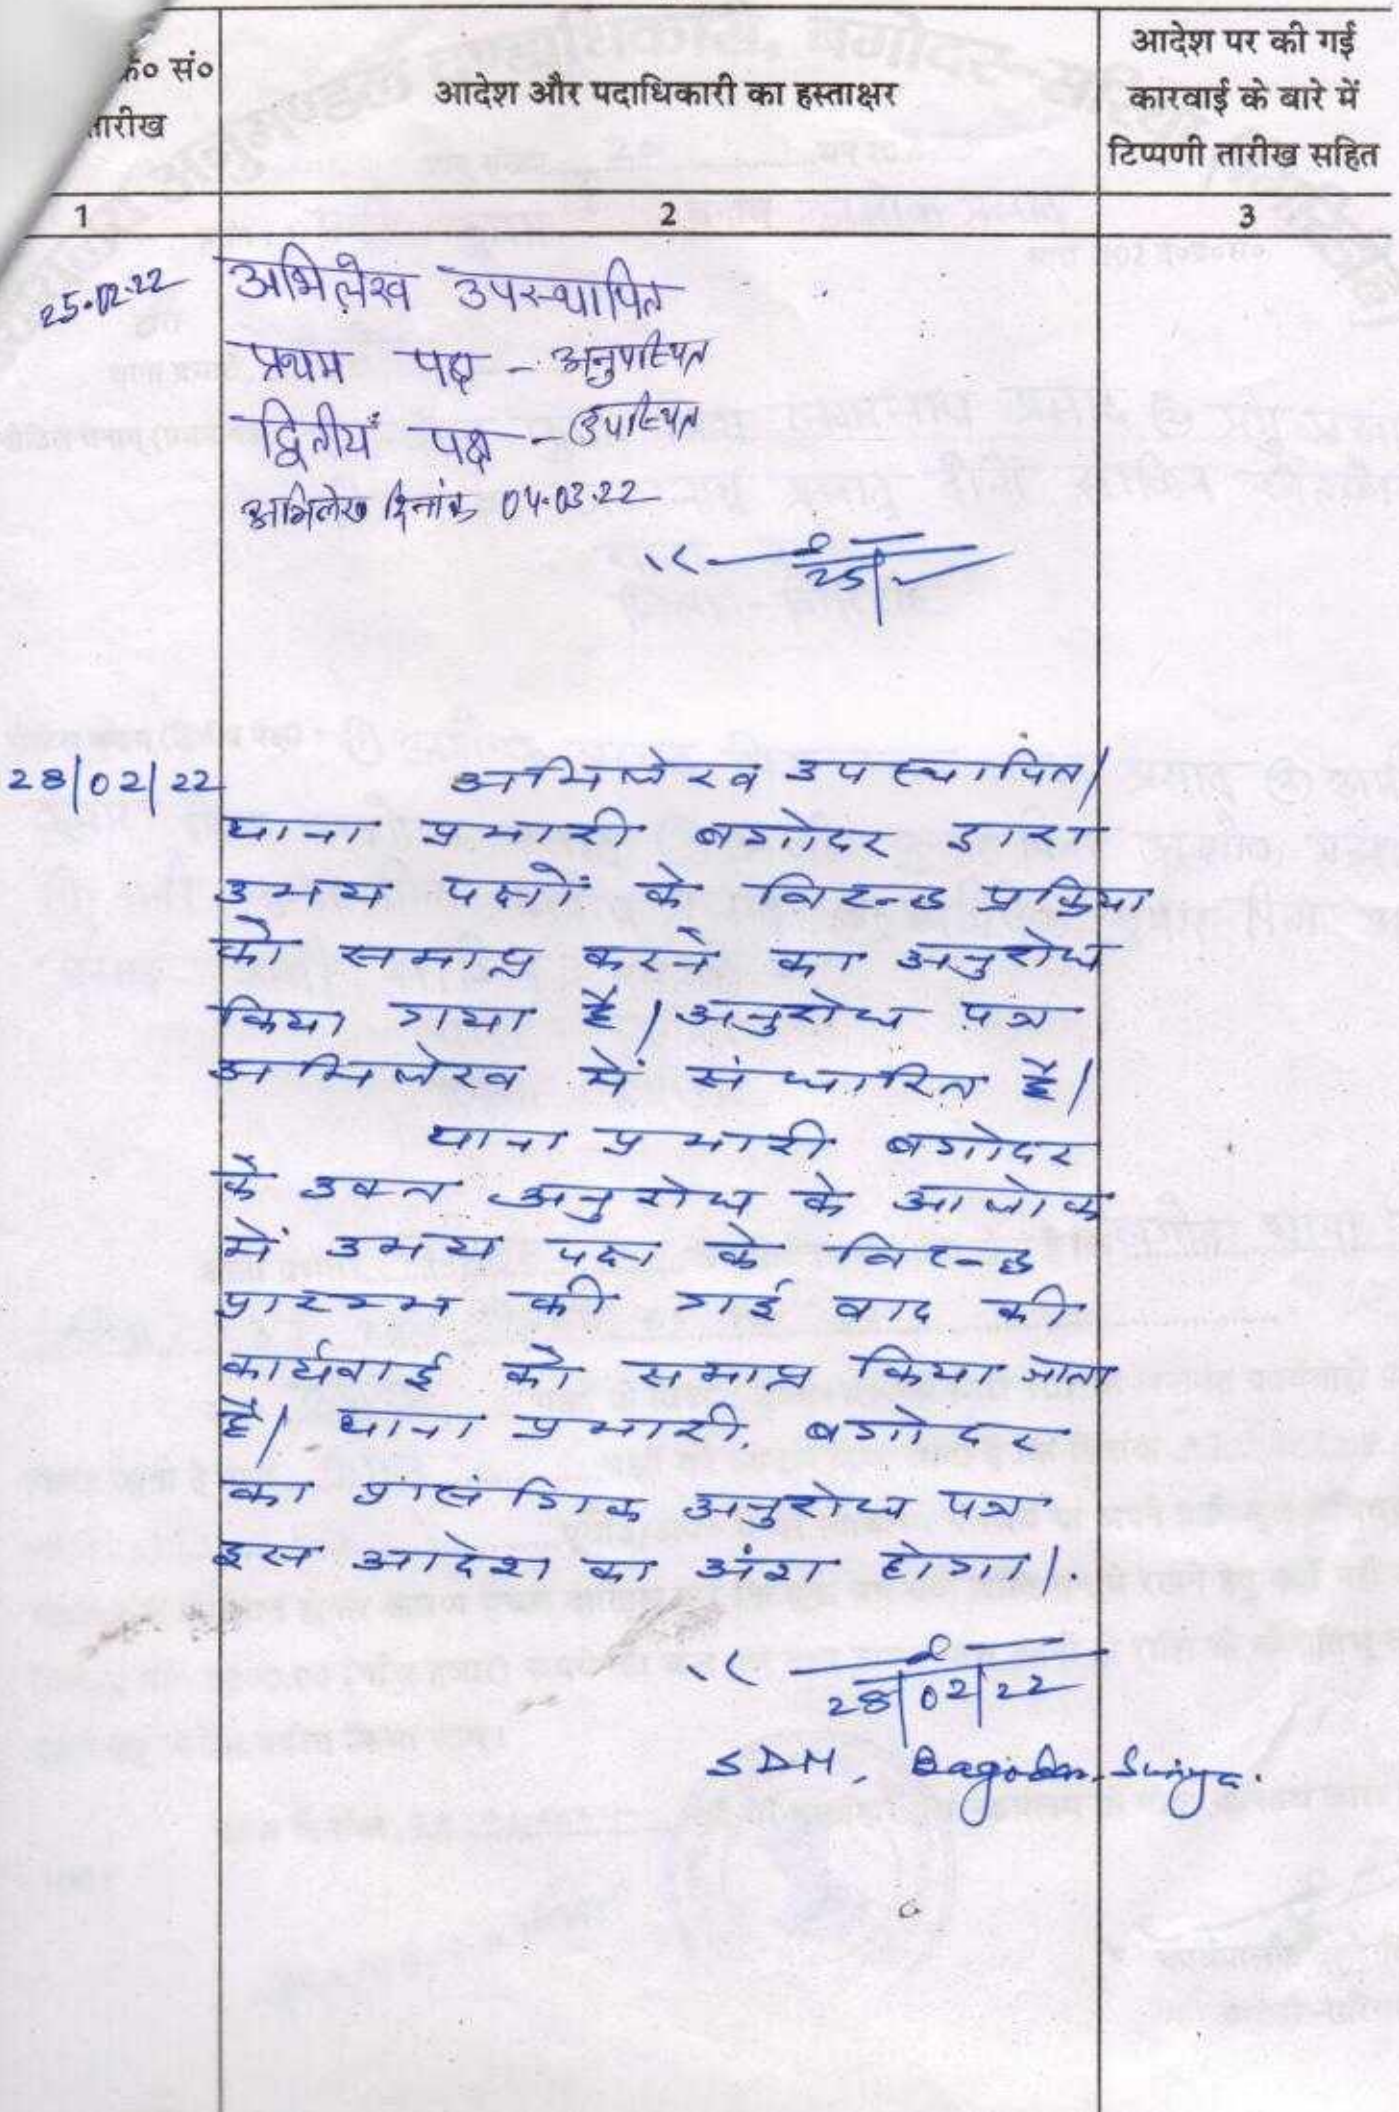 क्र० सं०
तारीख
आदेश और पदाधिकारी का हस्ताक्षर
आदेश पर की गई
कारवाई के बारे में
टिप्पणी तारीख सहित
1
2
3
25.02.22
अभिलेख उपस्थापित
प्रथम पक्ष - अनुपस्थित
द्वितीय पक्ष - उपस्थित
अभिलेख दिनांक 04.03.22
25/
28/02/22
अभिलेख उपस्थापित/
थाना प्रभारी बगोदर द्वारा
उभय पक्षों के विरुद्ध प्रक्रिया
को समाप्त करने का अनुरोध
किया गया है/ अनुरोध पत्र
अभिलेख में संधारित है/
थाना प्रभारी बगोदर
के उक्त अनुरोध के आलोक
में उभय पक्ष के विरुद्ध
प्रारम्भ की गई वाद की
कार्यवाई को समाप्त किया जाता
है/ थाना प्रभारी, बगोदर
का प्रासंगिक अनुरोध पत्र
इस आदेश का अंश होगा/.
28/02/22
SDM, Bagodar-Suriya.